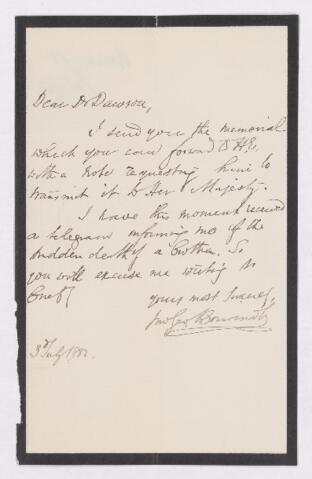 Dear Dr Dawson,
I send you the memorial
which you can forward to H.E.
with a note requesting him to
transmit it to Her Majesty.
I have this moment received
a telegram informing me of the
sudden death of a brother. So
you will excuse me writing so
briefly
yours most sincerely,
Jno Geo Bourinot
3rd July 1882.